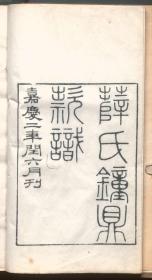 薛氏鐘鼎
款識
嘉慶二年閏六月刊